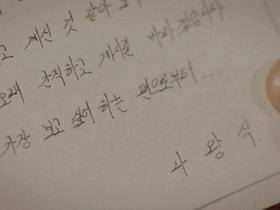 고 계신 것 같아 보
오래 간직하고 계시길 바라겠습니다.
가장 보고 싶어 하는 편으로부터...
사 왕 식